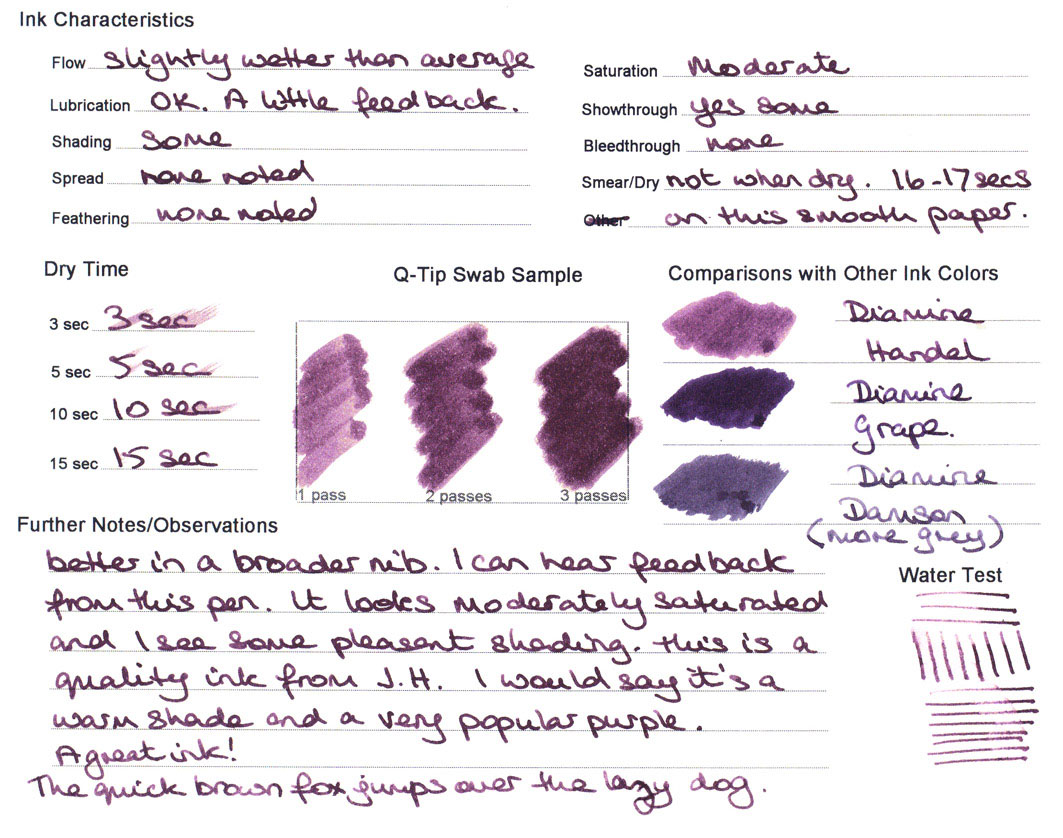 Ink Characteristics
Flow slightly wetter than average
Lubrication OK. A little feedback.
Shading some
Spread none noted
Feathering none noted
Saturation Moderate
Showthrough yes some
Bleedthrough none
Smear/Dry not when dry. 16-17 secs
Other on this smooth paper.
Dry Time
3 sec 3 sec
5 sec 5 sec
10 sec 10 sec
15 sec 15 sec
Q-Tip Swab Sample
1 pass 2 passes 3 passes
Comparisons with Other Ink Colors
Diamine
Handel
Diamine
Grape.
Diamine
Damson
(more grey)
Further Notes/Observations
better in a broader nib. I can hear feedback
from this pen. It looks moderately saturated
and I see some pleasant shading. this is a
quality ink from J.H. I would say it's a
warm shade and a very popular purple.
A great ink!
The quick brown fox jumps over the lazy dog.
Water Test